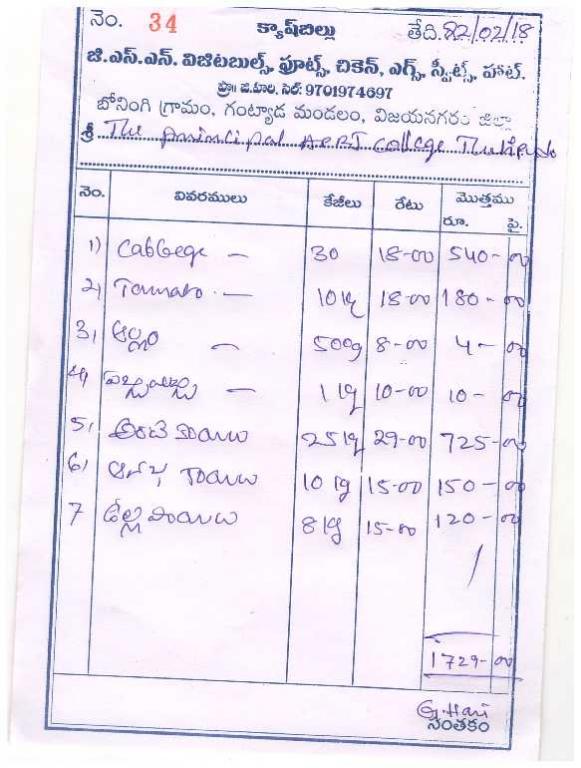 నెం. 34 క్యాష్‌బిల్లు తేది. 82/02/18
జి.ఎస్.ఎన్. విజిటబుల్స్, ఫ్రూట్స్, చికెన్, ఎగ్స్, స్వీట్స్, హాట్.
ప్రొ॥ జి.హరి, సెల్: 9701974697
బోనింగి గ్రామం, గంట్యాడ మండలం, విజయనగరం జిల్లా
శ్రీ The Principal A.P.R.J College
నెం. వివరములు కేజీలు రేటు మొత్తము
రూ. పై.
1) Cabbege — 30 18-00 540-00
2) Tomato — 10 kg 18-00 180-00
3) అల్లం — 500g 8-00 4-00
4) — 1 kg 10-00 10-00
5) అరటి కాయలు 25 kg 29-00 725-00
6) ఆనప కాయలు 10 kg 15-00 150-00
7 ఉల్లి పాయలు 8 kg 15-00 120-00
1729-00
G. Hari
సంతకం